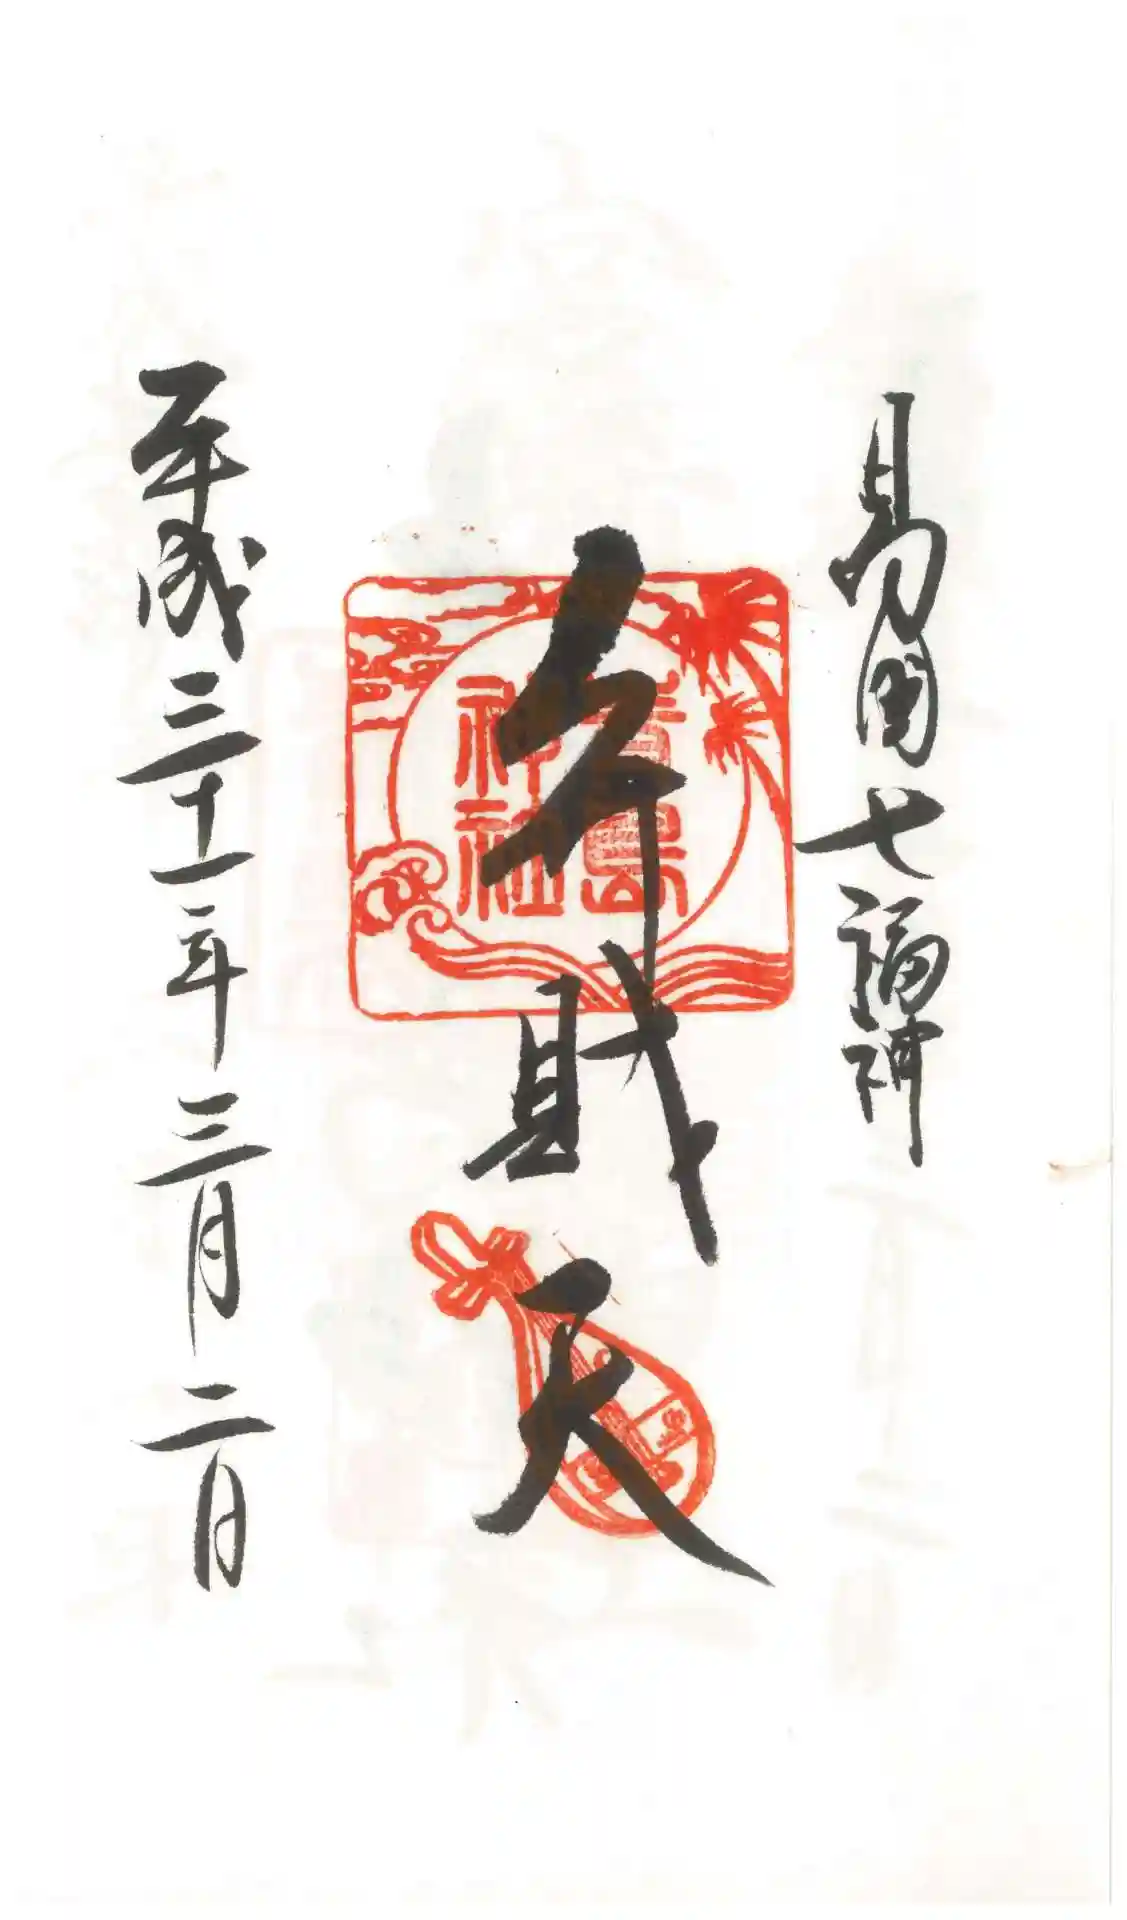 日向國七福神
弁財天
青島
神社
平成三十一年三月二日